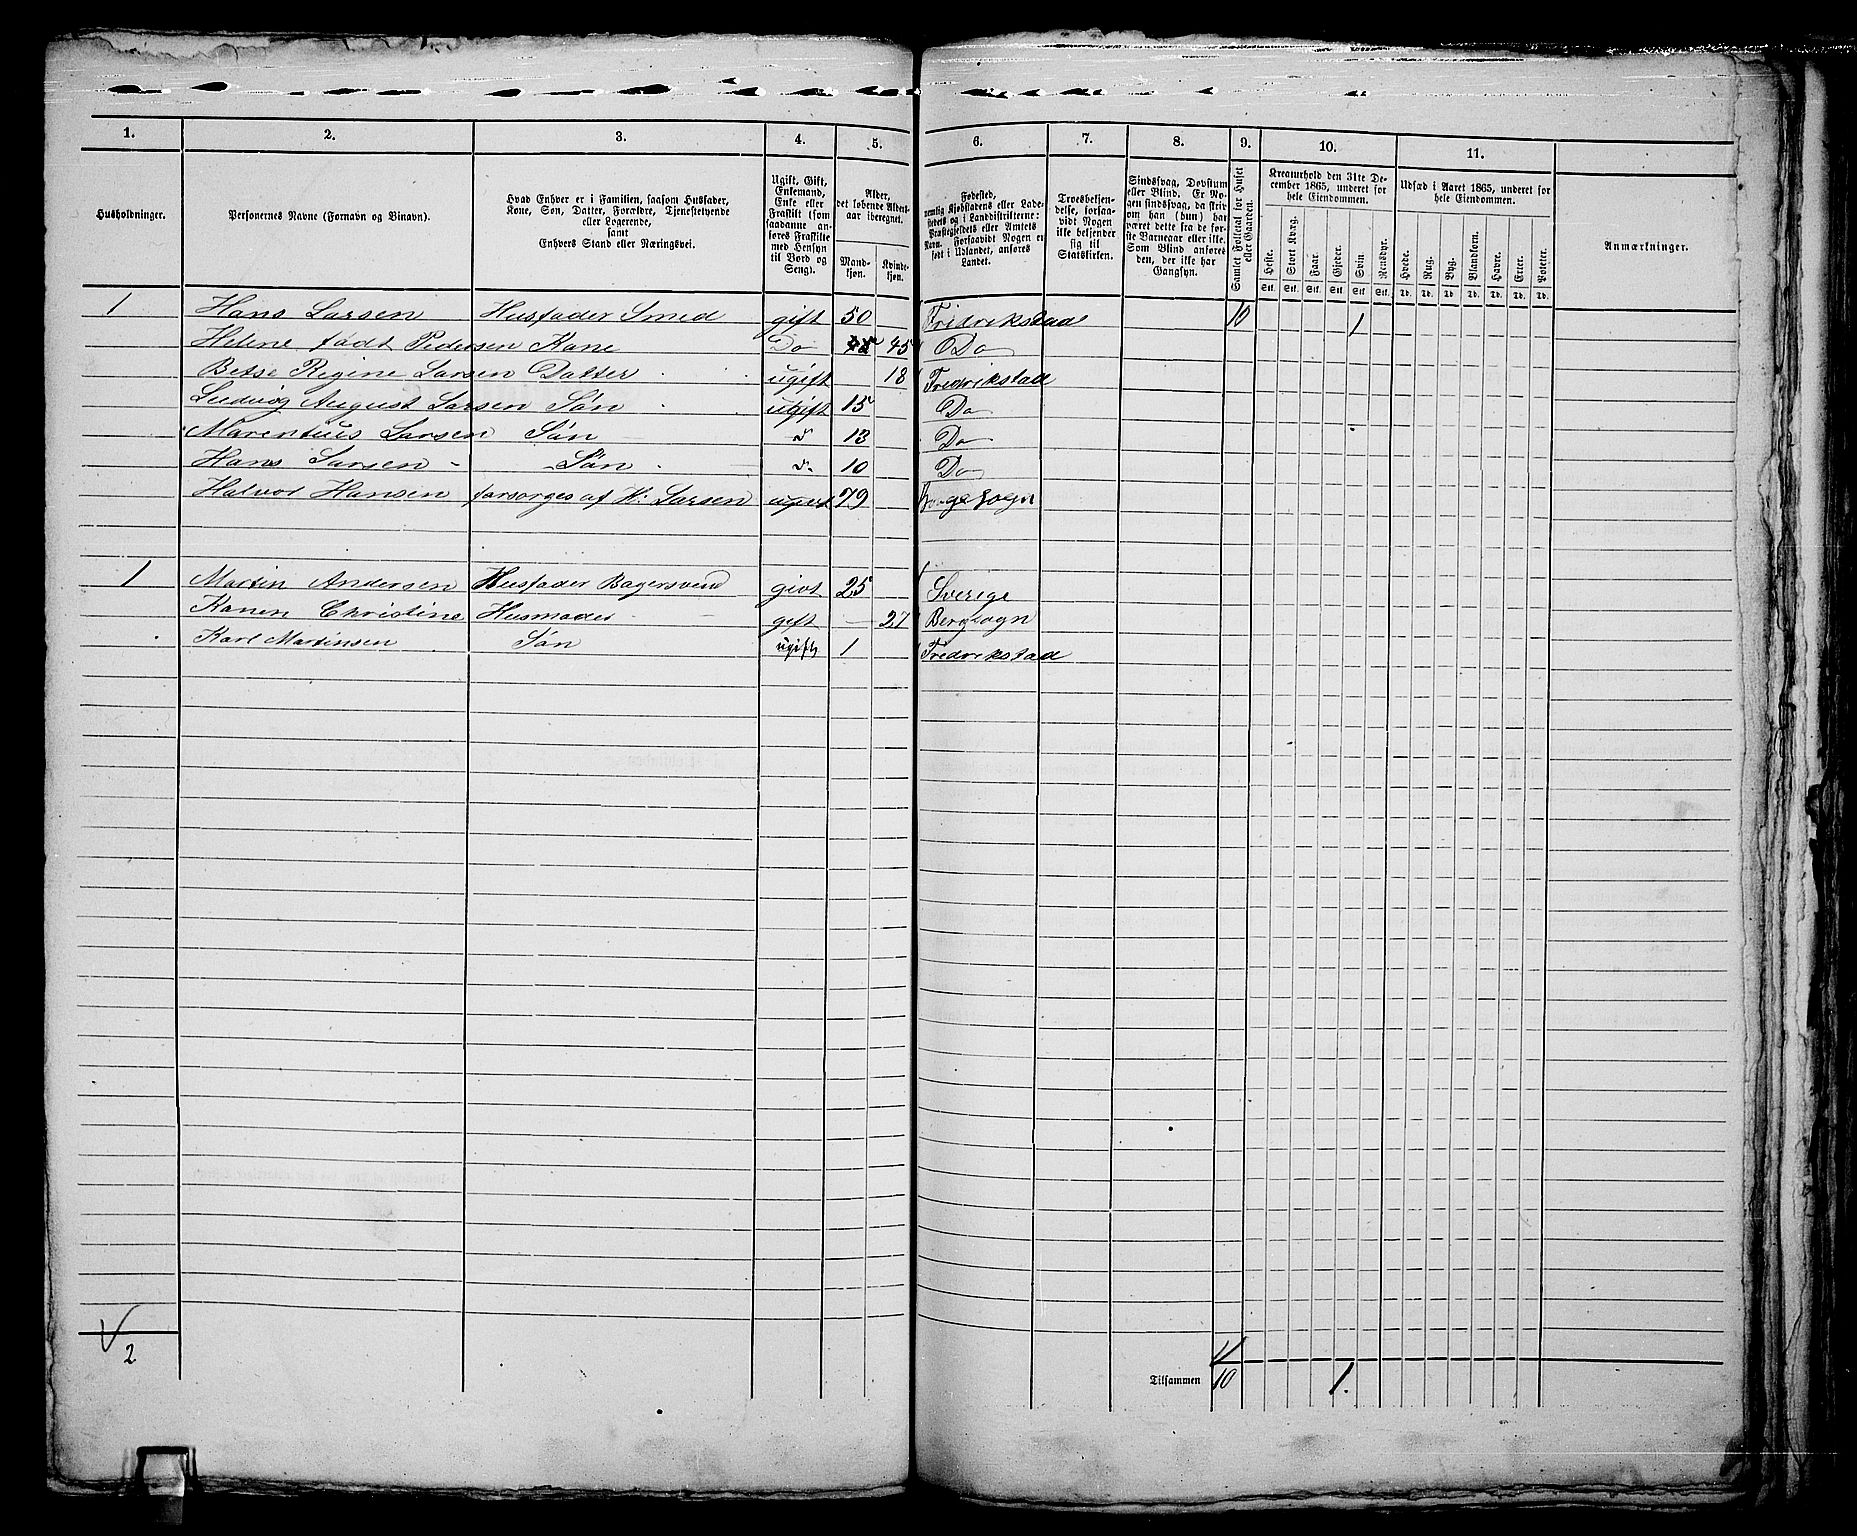 1. 2. 3. 4. 5. 6. 7. 8. 9. 10. 11.
Husholdninger.
Personernes Navne (Fornavn og Binavn).
Hvad Enhver er i Familien, saasom Husfader,
Kone, Søn, Datter, Forældre, Tjenestetyende
eller Logerende,
samt
Enhvers Stand eller Næringsvei.
Ugift, Gift,
Enkemand,
Enke eller
Fraskilt (som
saadanne an-
føres Fraskilte
med Hensyn
til Bord og
Seng).
Alder,
det løbende Alders-
aar iberegnet.
Mand-
kjøn.
Kvinde-
kjøn.
Fødested,
nemlig Kjøbstadens eller Lade-
stedets og i Landdistrikterne:
Præstegjeldets eller Amtets
Navn. Forsaavidt Nogen er
født i Udlandet, anføres
Landet.
Troesbekjen-
delse, forsaa-
vidt Nogen
ikke bekjender
sig til
Statskirken.
Sindssvag, Døvstum
eller Blind. Er No-
gen sindssvag, da skri-
ves om han (hun) har
været dette fra de før-
ste Barneaar eller ikke.
Som Blind anføres
den, der ikke har
Gangsyn.
Samlet Folketal for Huset
eller Gaarden.
Kreaturhold den 31te De-
cember 1865, underet for
hele Eiendommen.
Heste. Stort Kvæg. Faar. Gjeder. Svin. Rensdyr.
Stk. Stk. Stk. Stk. Stk. Stk.
Udsæd i Aaret 1865, underet for
hele Eiendommen.
Hvede. Rug. Byg. Blandkorn. Havre. Erter. Poteter.
Td. Td. Td. Td. Td. Td. Td.
Anmærkninger.
1 Hans Larsen Husfader Smed gift 50 Fridrikstad 10 1
Helene født Pedersen Kone Do 45 45 Do
Betse Regine Larsen Datter ugift 18 Fredrikstad
Ludvig August Larsen Søn ugift 15 Do
Marentius Larsen Søn d 13 Do
Hans Larsen Søn d. 10 Do
Halvor Hansen forsørges af H: Larsen ugivt 79
1 Martin Andersen Husfader Bagersvend givt 25 Sverige
Karen Christine Husmoder gift 27 Bergsogn
Karl Martinsen Søn ugift 1 Fredrikstad
2
11
Tilsammen 10 1.